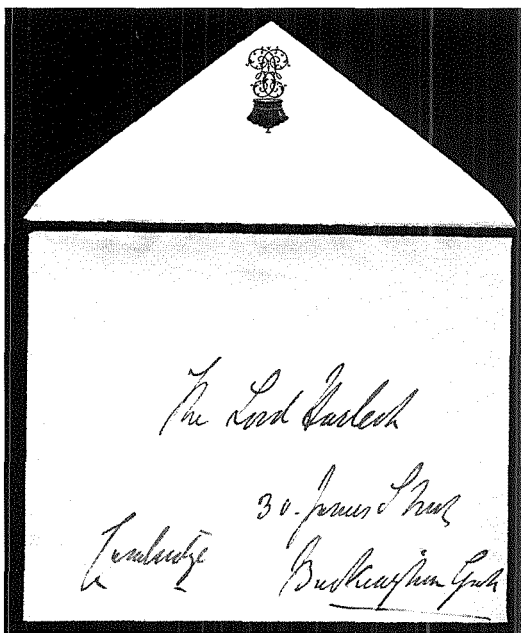 The Lord Harlech
30. James Street
Cambridge
Buckingham Gate